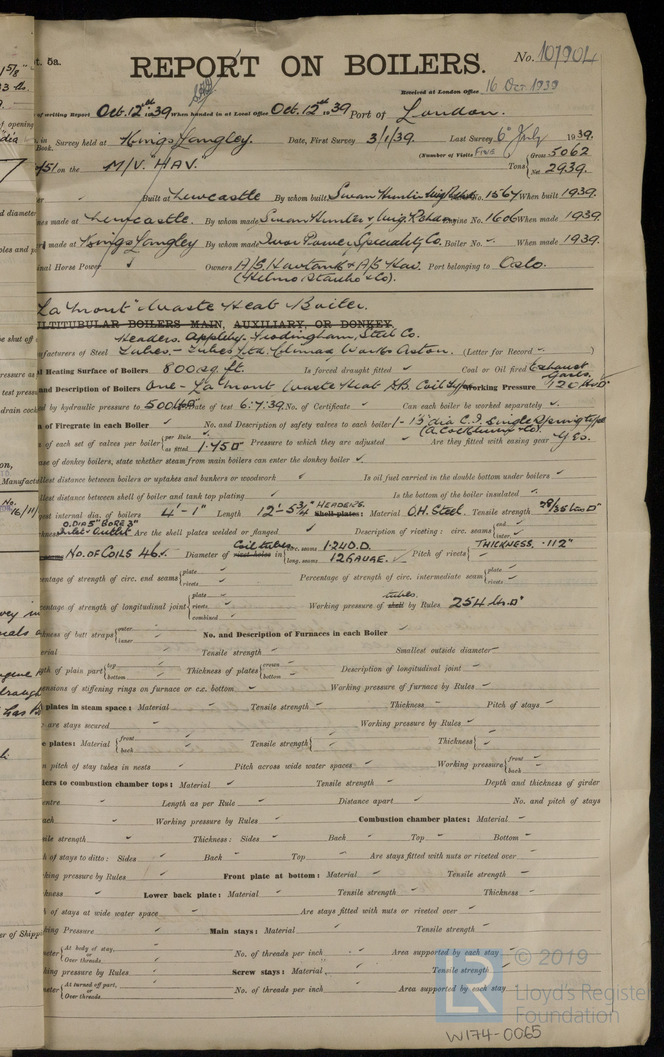 t. 5a.
REPORT ON BOILERS.
No. 107904
Received at London Office 16 Oct 1939
of writing Report Oct. 12th 39 When handed in at Local Office Oct. 12th 1939 Port of London.
in Survey held at Kings Langley. Date, First Survey 3/1/39. Last Survey 6th July 1939.
Book.
(Number of Visits Five
on the M/V. "HAV." Tons { Gross 5062
Net 2939.
Built at Newcastle By whom built Swan Hunter No. 1567 When built 1939.
es made at Newcastle. By whom made Swan Hunter & Wig. Richardson Engine No. 1606 When made 1939
made at Kings Langley By whom made Boiler No. When made 1939.
nal Horse Power Owners A/S. Havtank & A/S Hav. Port belonging to Oslo.
(Helmer Staubo & Co).
La Mont Waste Heat Boiler.
ULTITUBULAR BOILERS MAIN, AUXILIARY, OR DONKEY.
Headers. Appleby-Frodingham, Steel Co.
ufacturers of Steel Tubes - Tubes Ltd. Climax Works Aston. (Letter for Record )
l Heating Surface of Boilers 800 sq. ft. Is forced draught fitted Coal or Oil fired Exhaust Gases.
and Description of Boilers One - La Mont Waste Heat Coil Type Working Pressure 120
d by hydraulic pressure to 500 Date of test 6.7.39. No. of Certificate Can each boiler be worked separately
a of Firegrate in each Boiler No. and Description of safety valves to each boiler 1 - 1½" dia C.I. Single Spring type
(A. Cockburn & Co.)
a of each set of valves per boiler { per Rule
as fitted 1.45 Pressure to which they are adjusted Are they fitted with easing gear Yes.
ase of donkey boilers, state whether steam from main boilers can enter the donkey boiler
llest distance between boilers or uptakes and bunkers or woodwork Is oil fuel carried in the double bottom under boilers
llest distance between shell of boiler and tank top plating Is the bottom of the boiler insulated
gest internal dia. of boilers 4'-1" Length 12'-5¾" HEADERS. Shell plates: Material O.H. Steel. Tensile strength 28/35 tons
O.DIA 5" BORE 3"
kness Inlet & Outlet Are the shell plates welded or flanged Description of riveting: circ. seams { end
inter.
No. OF COILS 46. Diameter of Coil tubes rivet holes in { circ. seams 1.24 O.D.
long. seams 12 GAUGE. Pitch of rivets { THICKNESS. .112"
centage of strength of circ. end seams { plate
rivets Percentage of strength of circ. intermediate seam { plate
rivets
centage of strength of longitudinal joint { plate
rivets
combined Working pressure of tubes shell by Rules 254
kness of butt straps { outer
inner No. and Description of Furnaces in each Boiler
erial Tensile strength Smallest outside diameter
gth of plain part { top
bottom Thickness of plates { crown
bottom Description of longitudinal joint
ensions of stiffening rings on furnace or c.c. bottom Working pressure of furnace by Rules
plates in steam space: Material Tensile strength Thickness Pitch of stays
are stays secured Working pressure by Rules
e plates: Material { front
back Tensile strength { Thickness {
n pitch of stay tubes in nests Pitch across wide water spaces Working pressure { front
back
ers to combustion chamber tops: Material Tensile strength Depth and thickness of girder
entre Length as per Rule Distance apart No. and pitch of stays
ach Working pressure by Rules Combustion chamber plates: Material
sile strength Thickness: Sides Back Top Bottom
h of stays to ditto: Sides Back Top Are stays fitted with nuts or riveted over
king pressure by Rules Front plate at bottom: Material Tensile strength
kness Lower back plate: Material Tensile strength Thickness
h of stays at wide water space Are stays fitted with nuts or riveted over
king Pressure Main stays: Material Tensile strength
meter { At body of stay,
or
Over threads No. of threads per inch Area supported by each stay
king pressure by Rules Screw stays: Material Tensile strength
meter { At turned off part,
or
Over threads No. of threads per inch Area supported by each stay
LR © 2019
Lloyd's Register
Foundation
W174-0065